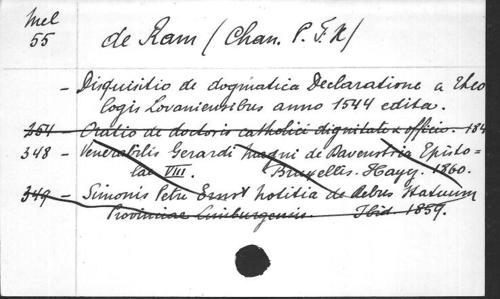 Mel
55
de Ram (Chan. P. F. X)
- Disquisitio de dogmatica Declaratione a Theo
logis Lovaniensibus anno 1544 edita.
264 - Oratio de doctoris catholici dignitate & officio. 184
348 - Venerabilis Gerardi magni de Daventria Episto-
lae VIII. Bruxellis. Hayez. 1860.
349 - Simonis Petri Ernst Notitia de Rebus Statuum
Provinciae Limburgensis. Ibid. 1859.